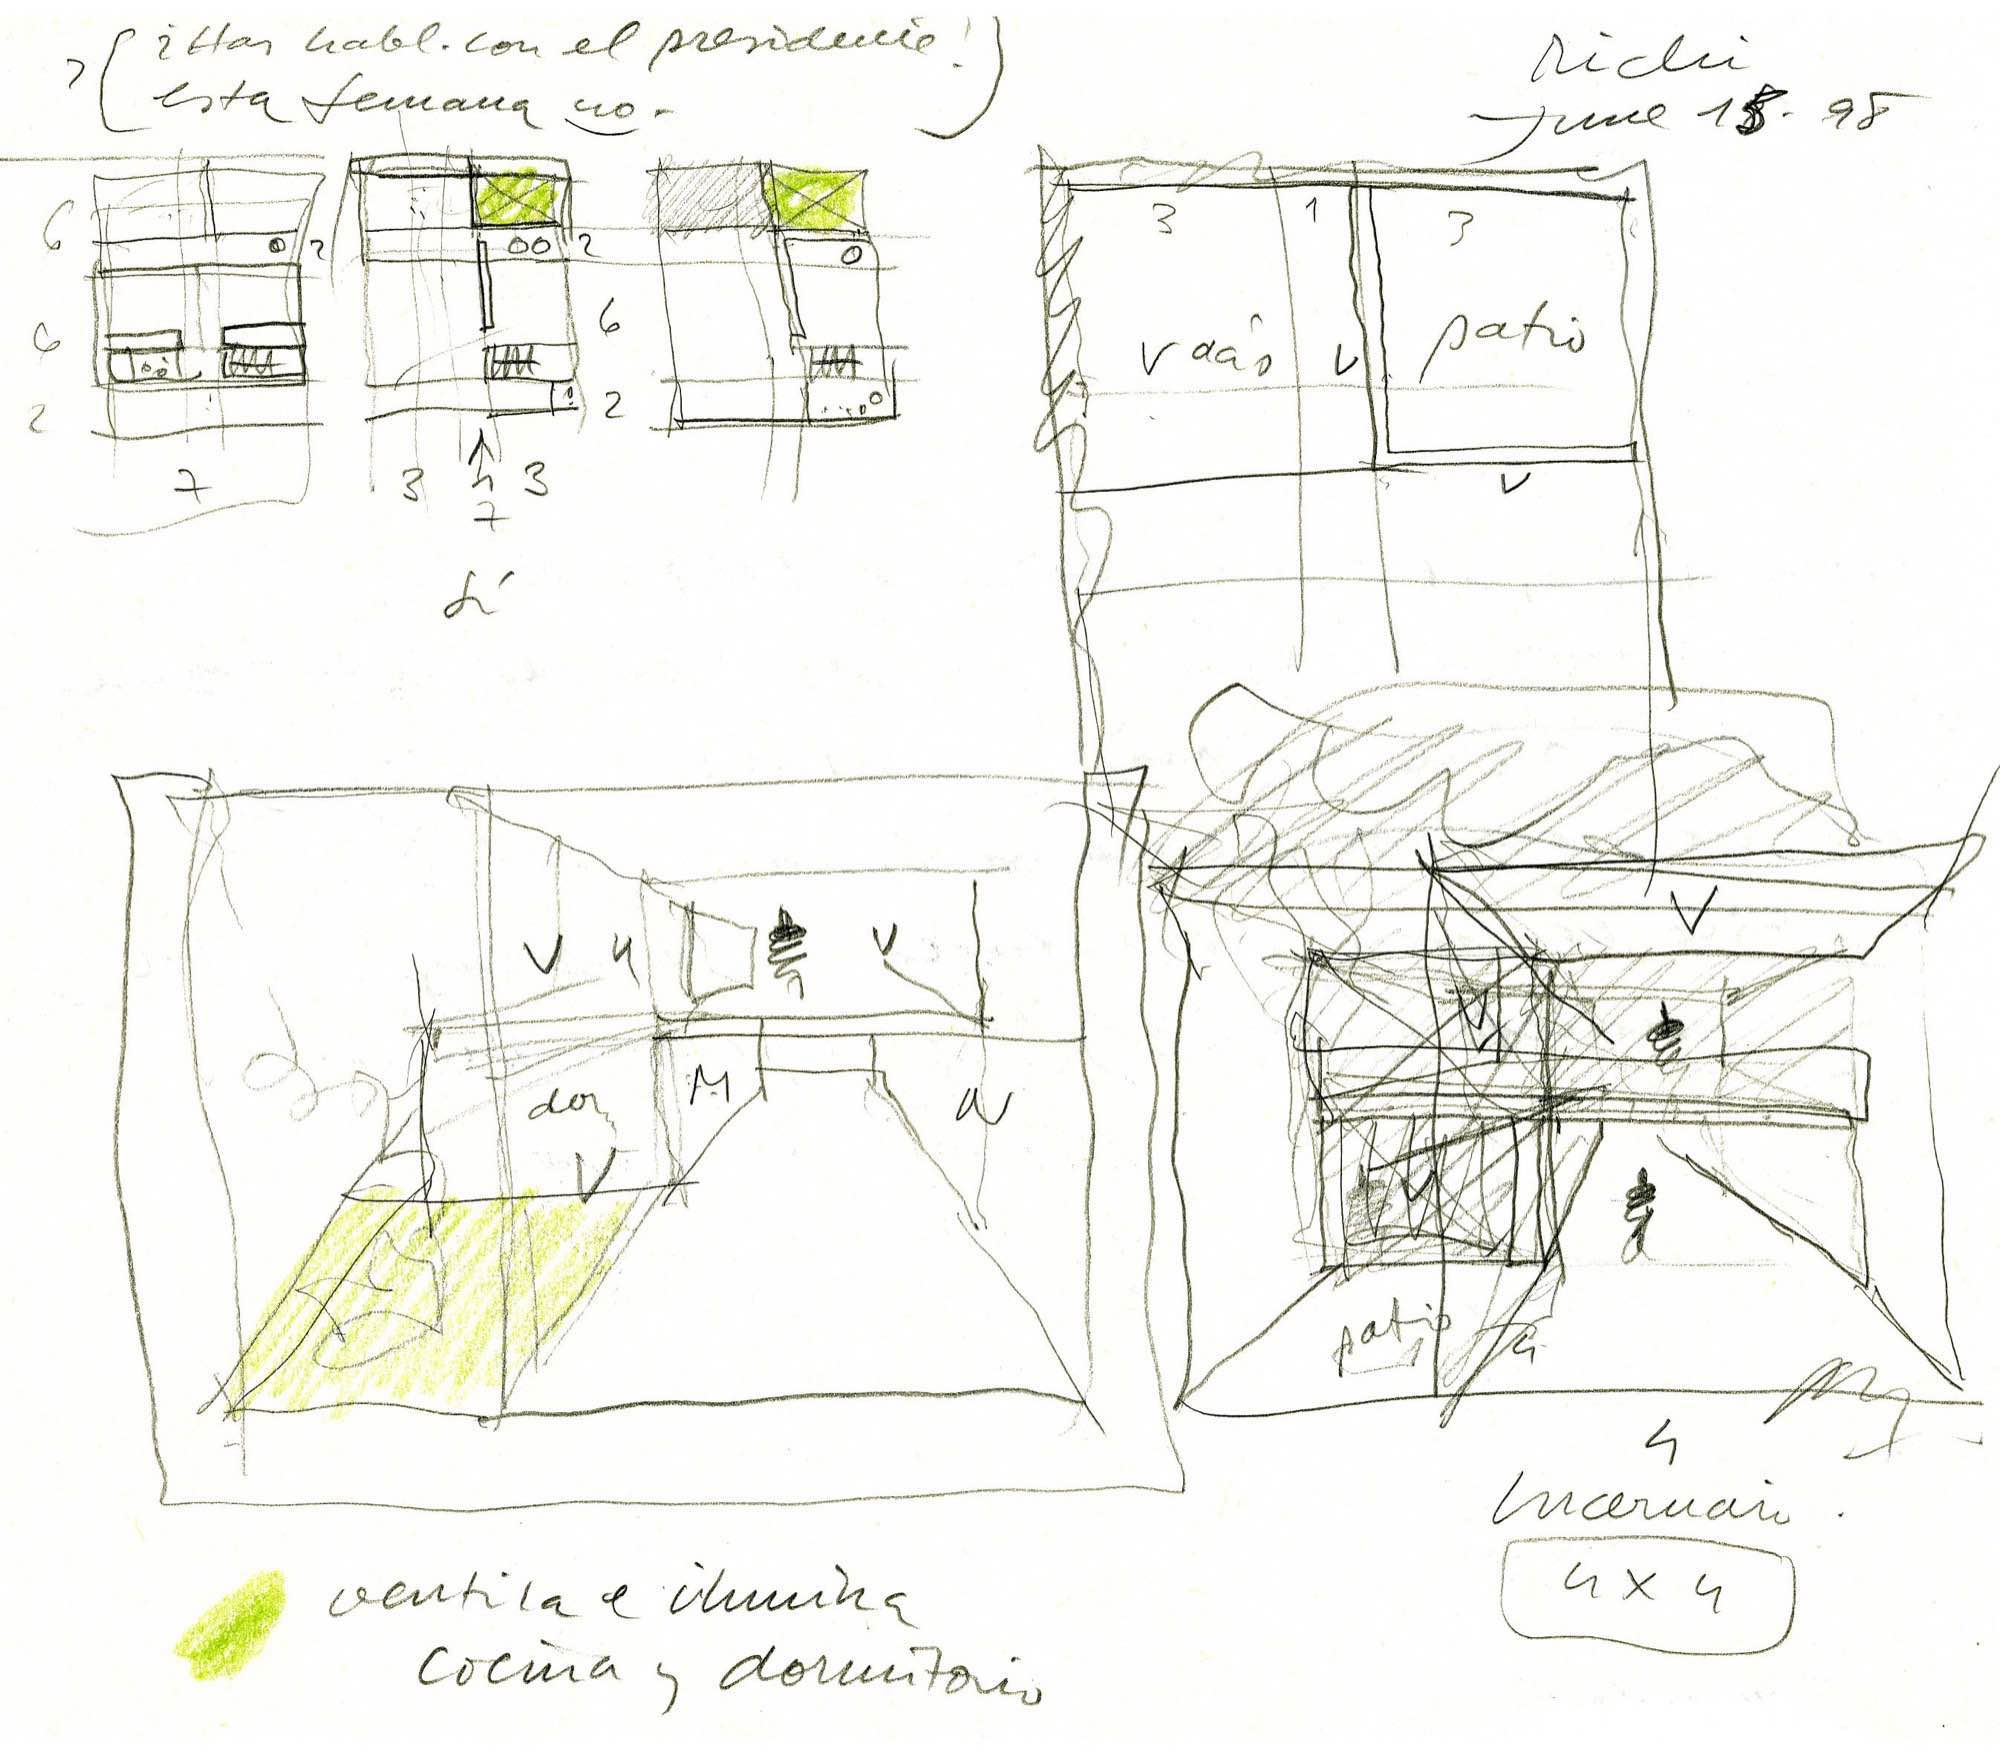 ¿Has habl. con el presidente!
esta semana no.
June 15. 98
6
2
2
6
6
2
2
7
3
3
7
sí
3
1
3
patio
V
V
V
4
V
V
dor
M
V
V
V
V
patio
4
4
4 x 4
ventila e ilumina
cocina y dormitorio